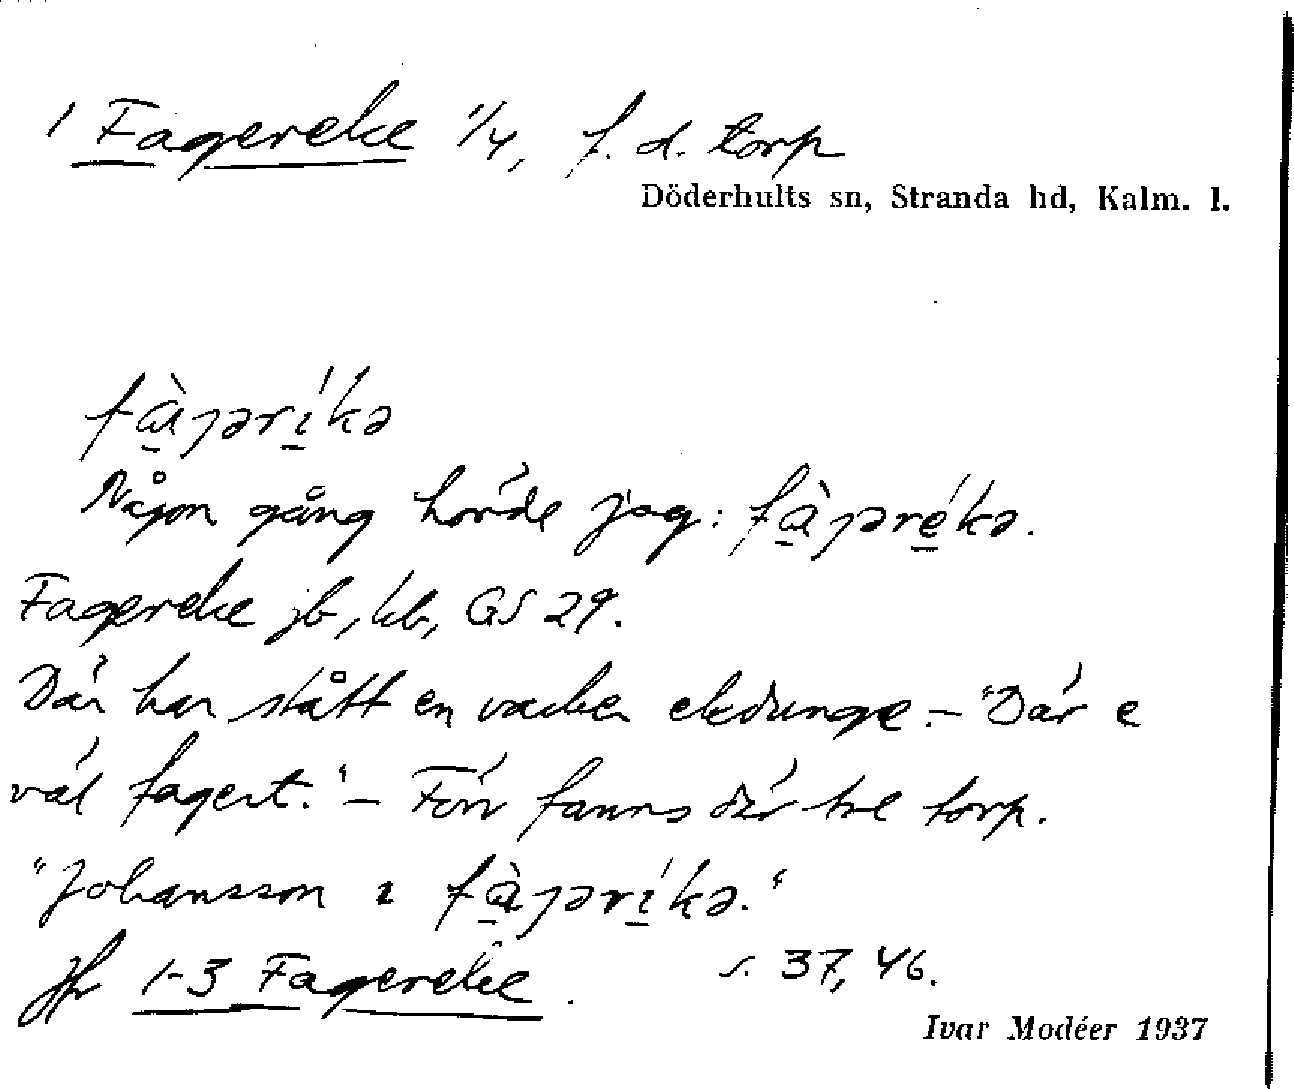 1 Fagereke 1/4, f. d. torp
Döderhults sn, Stranda hd, Kalm. l.
fàɟəríkə
Någon gång hörde jag: fàɟərékə.
Fagereke jb, kb, GS 29.
Där har stått en vacker ekdunge. – "Där e
väl fagert." – Förr fanns där tre torp.
"Johansson i fàɟəríkə."
Jfr 1-3 Fagereke. s. 37, 46.
Ivar Modéer 1937